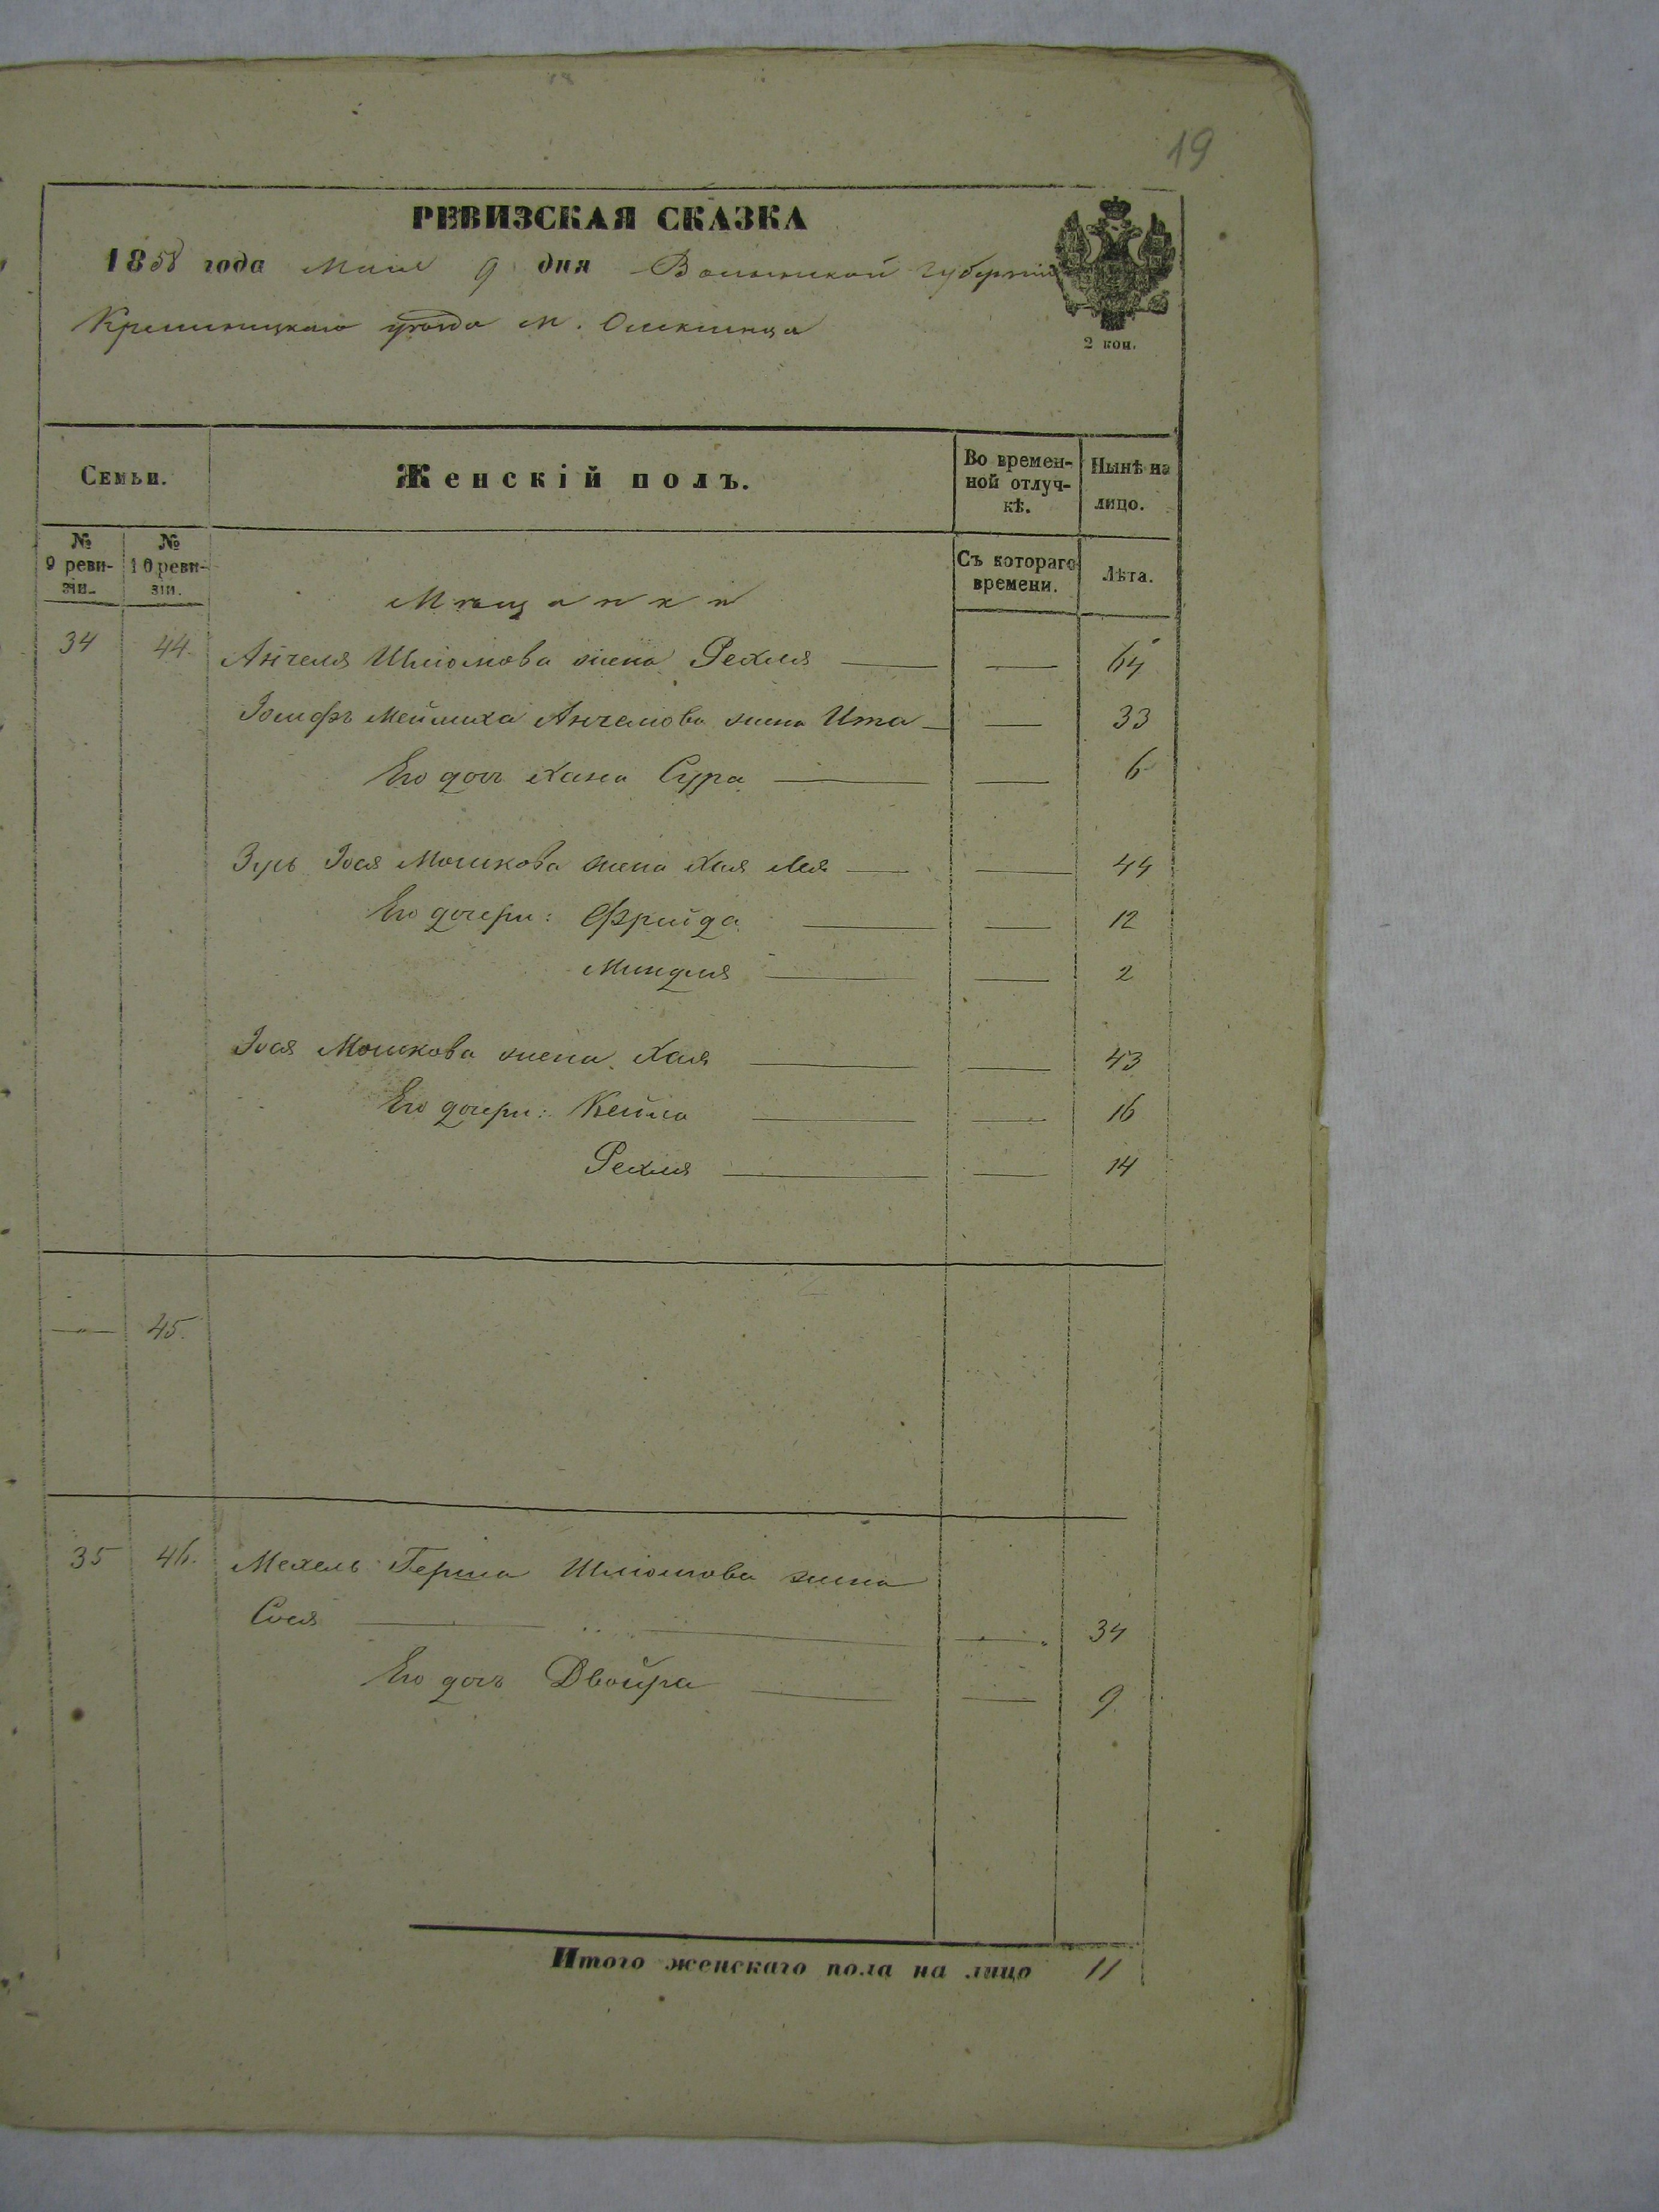 19
РЕВИЗСКАЯ СКАЗКА
1858 года Мая 9 дня Волынской губернии
2 коп.
Кременецкаго уезда м. Олексинца
Семьи.
Женскій полъ.
Во времен-
ной отлуч-
кѣ.
Нынѣ на
лицо.
№
9 реви-
зіи.
№
10 реви-
зіи.
Съ котораго
времени.
Лѣта.
Мѣщанки
34 44. Анчеля Шліомова жена Рехля — — 64
Іосифъ Мейлиха Анчелова жена Ита — — 33
Его дочь Хана Сура — — 6
Зусь Іося Мошкова жена Хая Лея — — 44
Его дочери: Фрейда — — 12
Миндля — — 2
Іося Мошкова жена Хая — — 43
Его дочери: Кейла — — 16
Рехля — — 14
— 45.
35 46. Мехель Герша Шліомова жена
Сося — — — 34
Его дочь Двойра — — 9
Итого женскаго пола на лицо 11